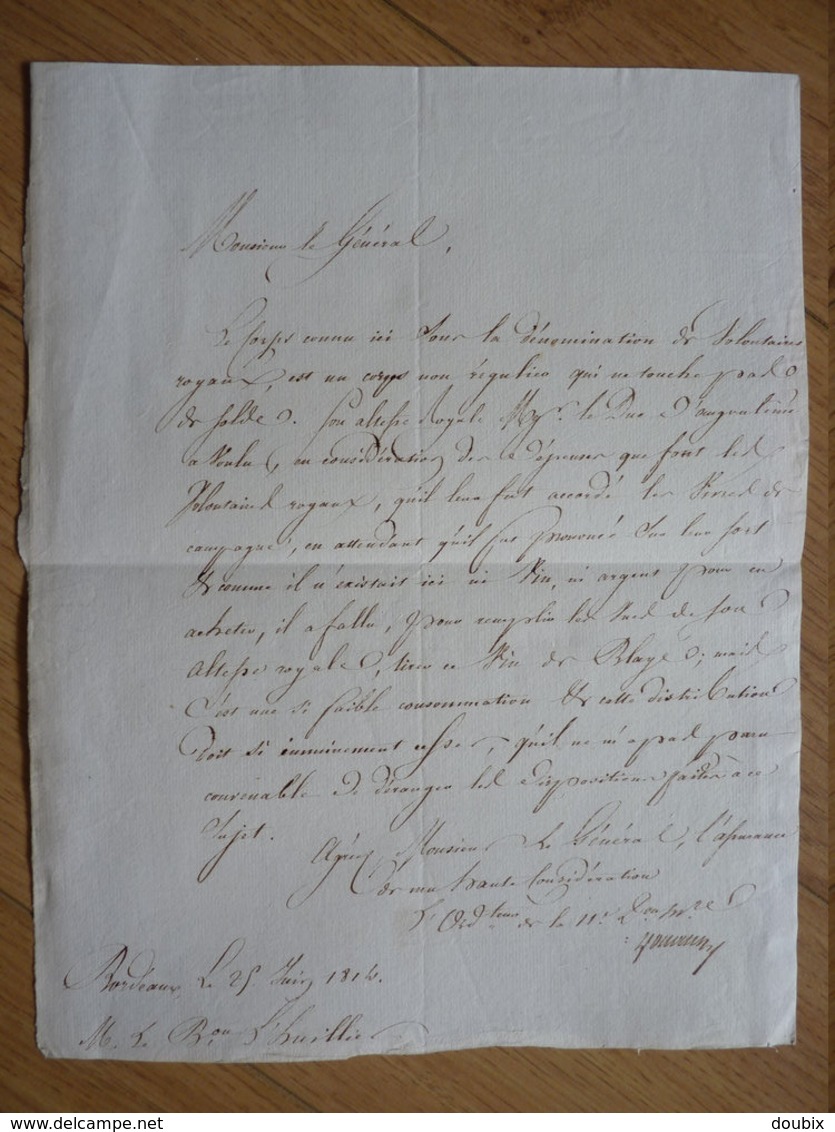 Monsieur le Général,
Le Corps connu ici sous la dénomination de Volontaires
royaux, est un corps non régulier qui ne touche pas
de solde. Son altesse Royale Mgr. le Duc d'angoulême
a voulu, en considération des dépenses que font les
Volontaires royaux, qu'il leur fut accordé les vivres de
campagne, en attendant qu'il fut prononcé sur leur sort
et comme il n'existait ici ni vin, ni argent pour en
acheter, il a fallu, pour remplir les vues de son
altesse royale, tirer ce vin de Blaye; mais
c'est une si faible consommation et cette distribution
doit si imminement cesser, qu'il ne m'a pas paru
convenable de déranger les dispositions faites à ce
sujet.
Agréez, Monsieur Le Général, l'assurance
de ma haute Considération
L'Ordteur de la 11e Don mre
Bordeaux, Le 25 Juin 1814.
M. Le Bon L'huillier
© delcampe.net
doubix